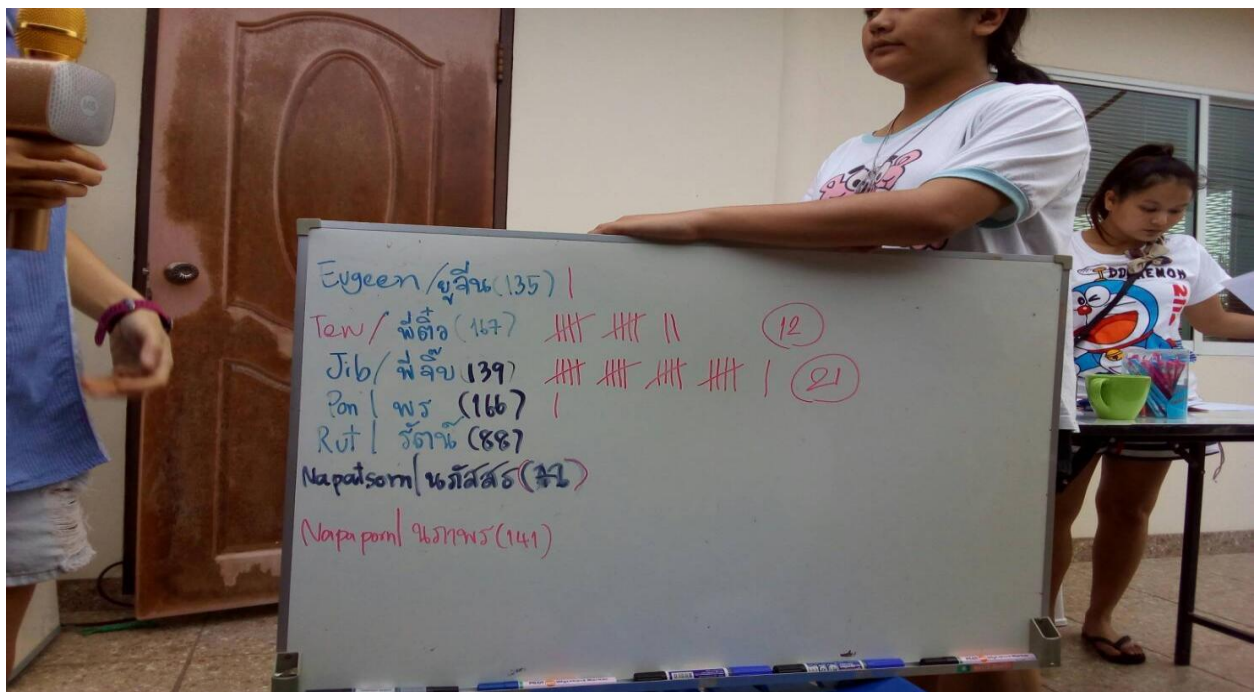 Eugeen/ยูจีน(135) |
Tew/ พี่ติ๋ว (167) 卌 卌 || 12
Jib/ พี่จิ๊บ (139) 卌 卌 卌 卌 | 21
Pon | พร (166) |
Rut | รัตน์ (88)
Napatsorn/นภัสสร
Napaporn/ นภาพร(141)